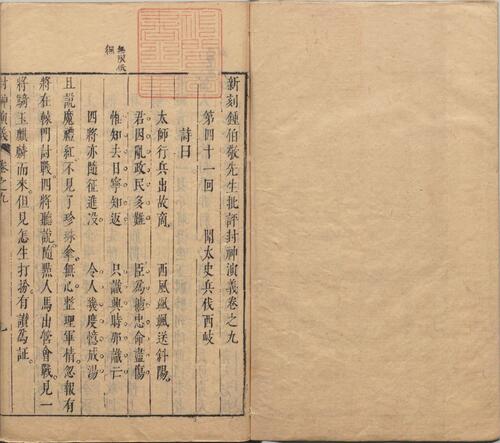 新刻鍾伯敬先生批評封神演義卷之九
第四十一回　聞太史兵伐西岐
詩曰
太師行兵出故商　西風颯颯送斜陽
君因亂政民多難　臣為摅忠命盡傷
惟知去日寧知返　只識興時那識亡
四將亦隨征進沒　令人幾度憶成湯
且說魔禮紅不見了珍珠傘無心整理軍情忽報有
將在轅門討戰四將聽說隨點人馬出營會戰見一
將騎玉麒麟而來但見怎生打扮有讚為証
封神演義　卷之九